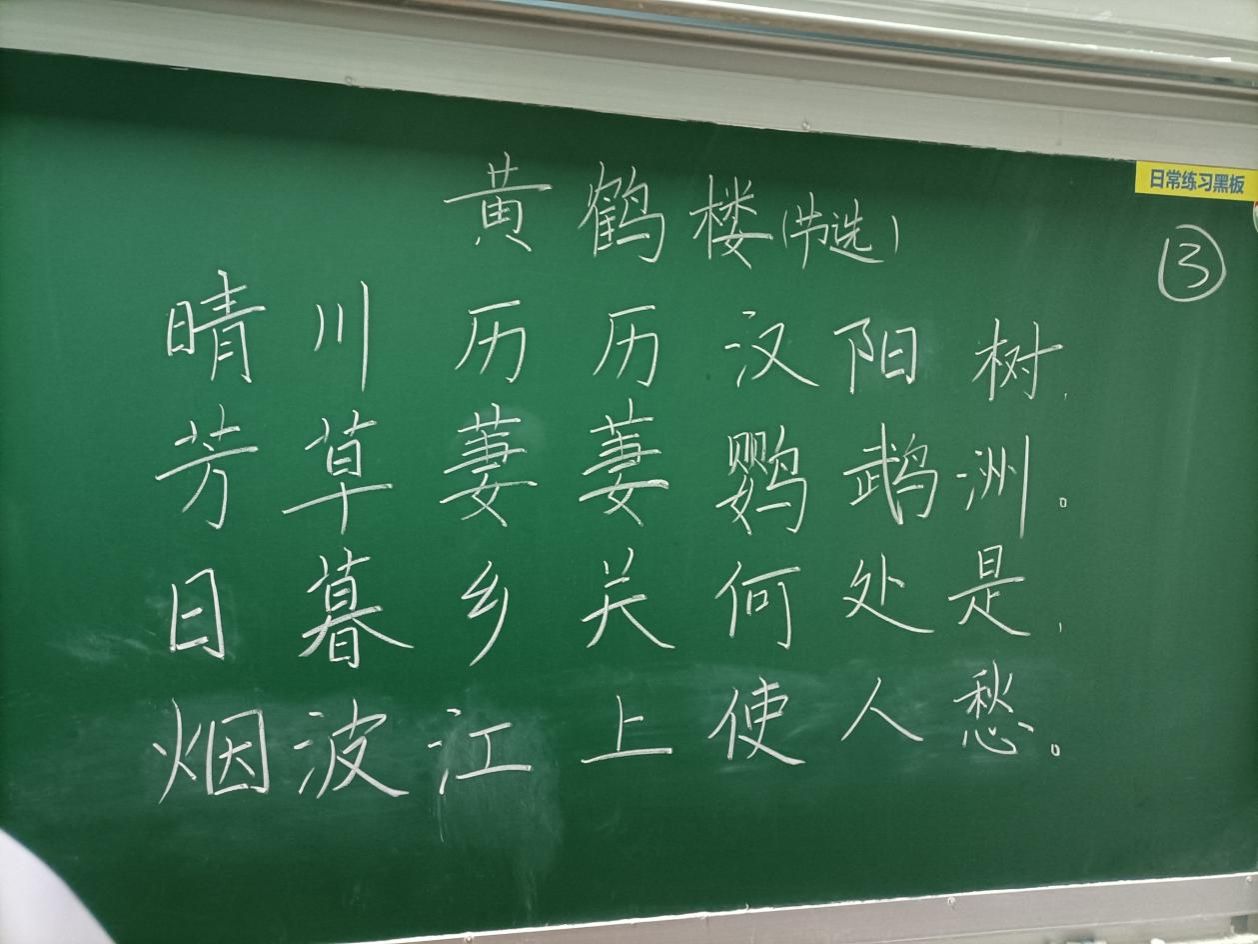 日常练习黑板
③
黄鹤楼(节选)
晴川历历汉阳树,
芳草萋萋鹦鹉洲。
日暮乡关何处是,
烟波江上使人愁。